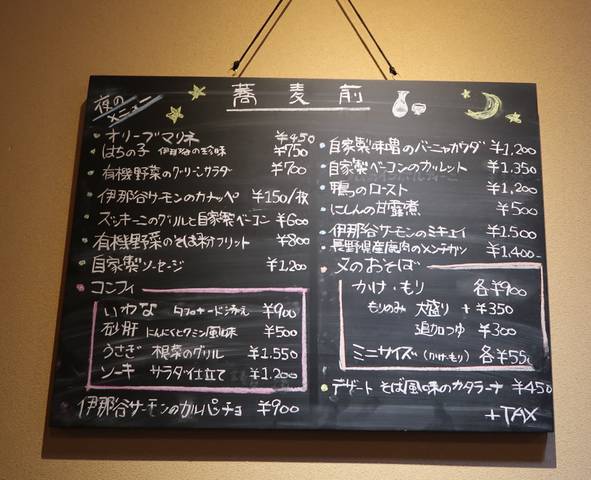 夜のメニュー
蕎麦前
オリーブマリネ ¥450
はちの子 伊那谷の珍味 ¥750
有機野菜のグリーンサラダ ¥700
伊那谷サーモンのカナッペ ¥150/枚
ズッキーニのグリルと自家製ベーコン ¥600
有機野菜のそば米フリット ¥800
自家製ソーセージ ¥1,200
コンフィ
いわな タプナード添え ¥900
砂肝 にんにくとクミン風味 ¥500
うさぎ 根菜のグリル ¥1,550
ソーキ サラダ仕立て ¥1,200
伊那谷サーモンのカルパッチョ ¥900
自家製味噌のバーニャカウダ ¥1,200
自家製ベーコンのカルレット ¥1,350
鴨のロースト ¥1,200
にしんの甘露煮 ¥500
伊那谷サーモンのミキュイ ¥1,500
長野県産鹿肉のメンチカツ ¥1,400
〆のおそば
かけ・もり 各¥900
もりのみ 大盛り +¥350
追加つゆ ¥300
ミニサイズ(かけ・もり) 各¥550
デザート そば風味のカタラーナ ¥450
+TAX